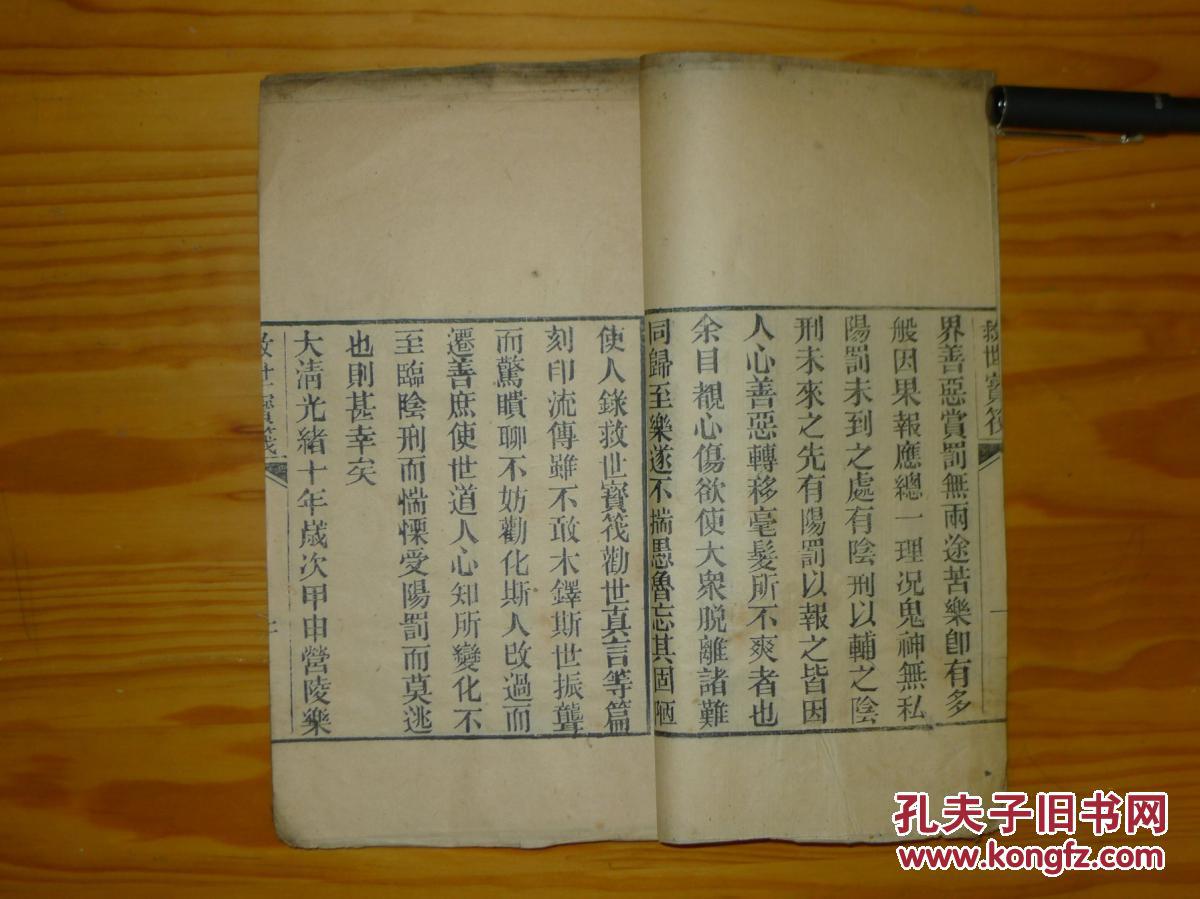 救世寶筏
界善惡賞罰無兩途苦樂卽有多
般因果報應總一理况鬼神無私
陽罰未到之處有陰刑以輔之陰
刑未來之先有陽罰以報之皆因
人心善惡轉移毫髮所不爽者也
余目覩心傷欲使大衆脱離諸難
同歸至樂遂不揣愚魯忘其固陋
使人錄救世寳筏勸世真言等篇
刻印流傳雖不敢木鐸斯世振聾
而驚聵聊不妨勸化斯人改過而
遷善庶使世道人心知所變化不
至臨陰刑而惴慄受陽罰而莫逃
也則甚幸矣
大淸光緒十年歲次甲申營陵樂
救世寶筏
孔夫子旧书网
www.kongfz.com